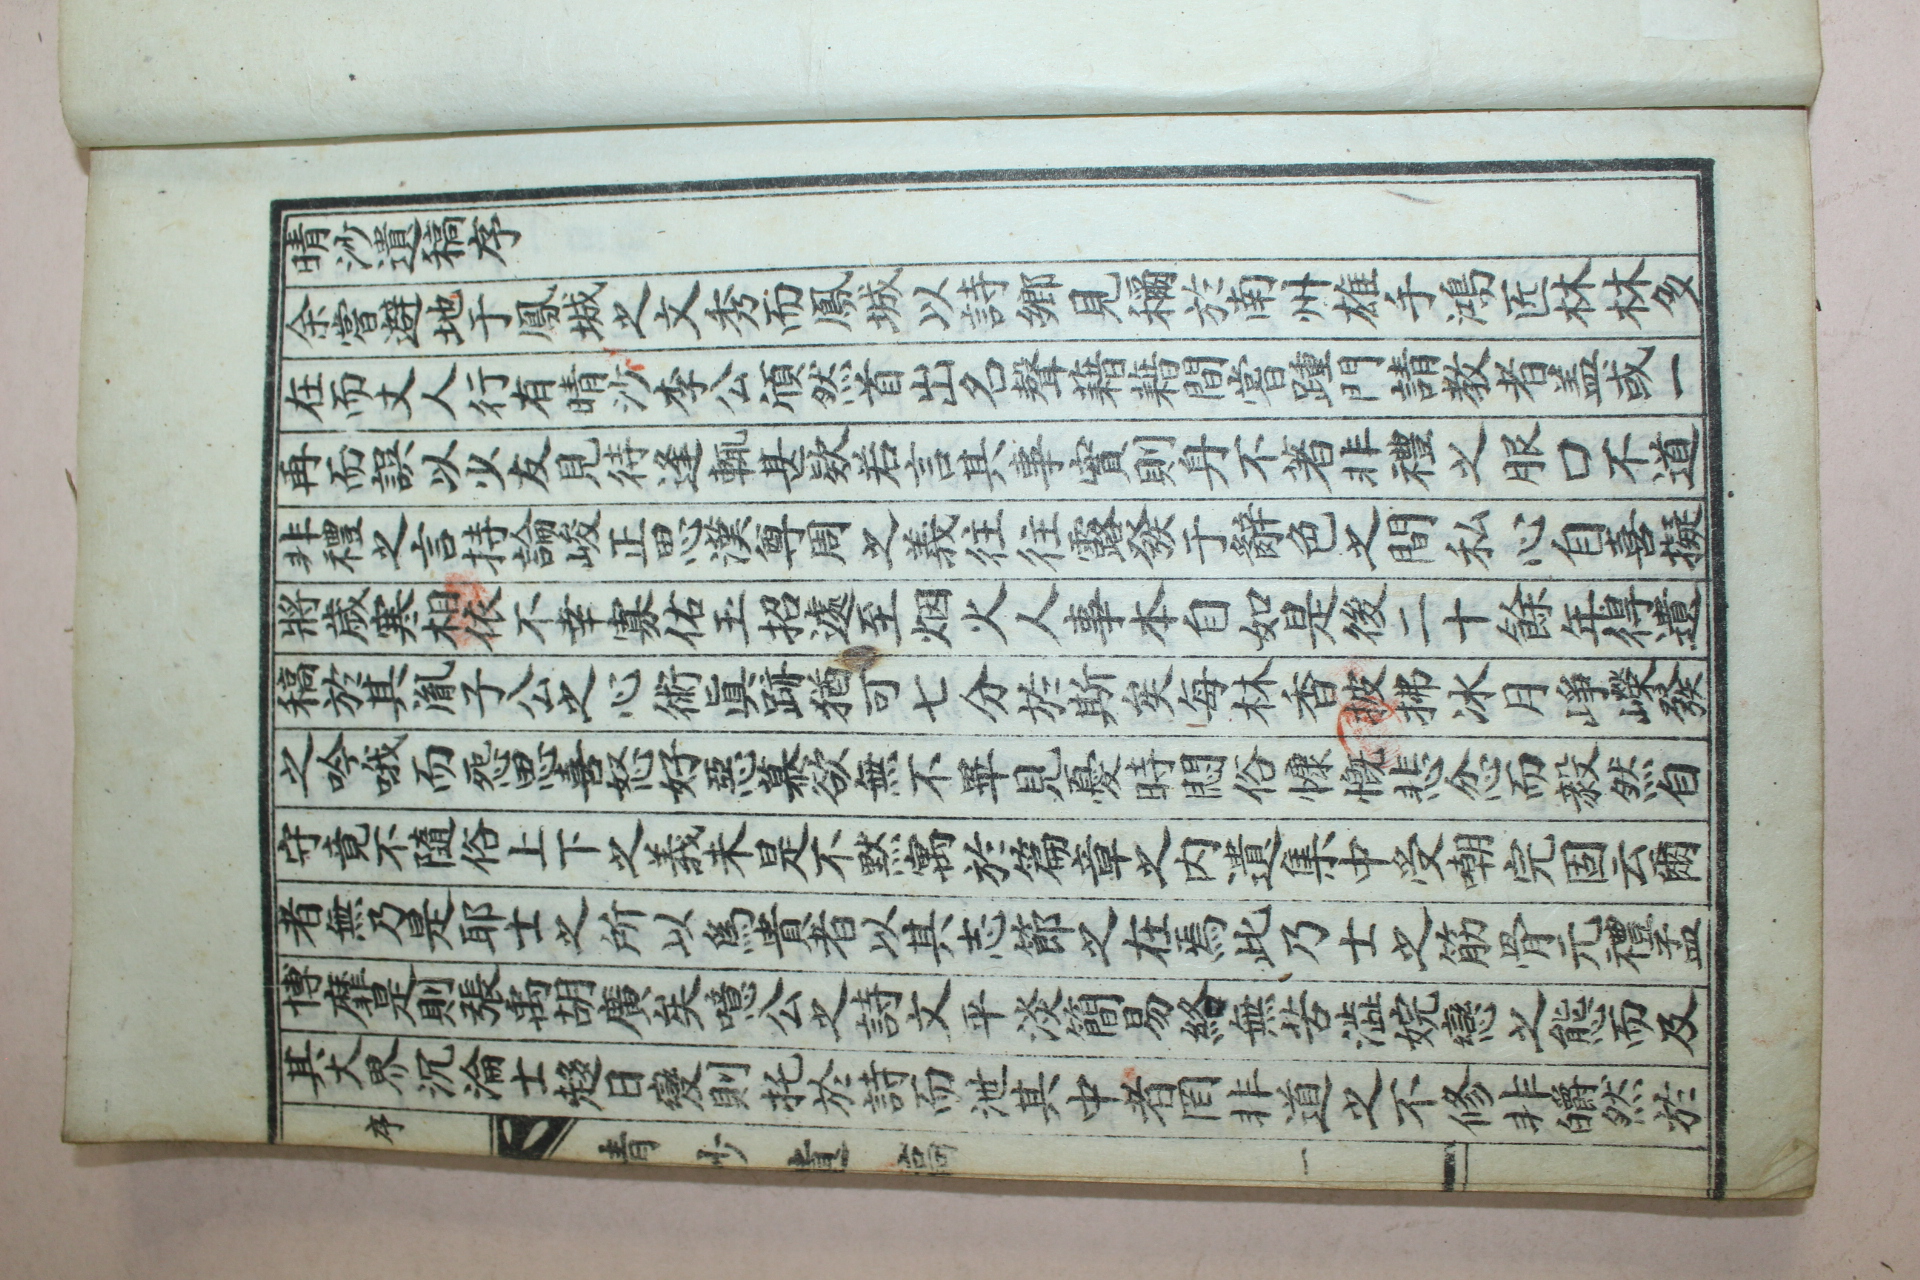 晴沙遺稿序
余嘗避地于鳳城之文秀而鳳城以詩鄕見稱於南州雄手鴻匠林林多
在而丈人行有晴沙李公頎然首出名聲藉藉間嘗踵門請敎者盖或一
再而誤以以友見待逢輒甚歎若言其事實則身不著非禮之服口不道
非禮之言持論峻正思漢尊周之義往往露發于辭色之間私心自喜擬
將歲寒相依不幸寡佑玉招遽至烟火人事本自如是後二十餘年得遺
稿於其胤子公之心術眞跡猶可七分於斯矣每林香披拂氷月崢嶸發
之吟哦而怨思喜怒好惡慕欲無不畢見憂時悶俗慷慨悲忿而毅然自
守竟不隨俗上下之義未是不默寓於篇章之內遺集中受嘲完固云爾
者無乃是耶士之所以爲貴者以其志節之在焉此乃士之筋骨元禮孟
博靡是則張禹胡廣矣噫公之詩文平淡簡易終無苦澁婉戀之態而及
其大界沉淪士趍日變則托於詩而泄其中者罔非道之不修非皭然於
序
晴沙遺稿
一